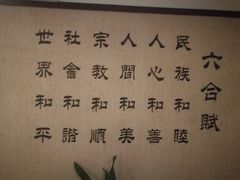 六合賦
民族和睦
人心和善
人間和美
宗教和順
社會和諧
世界和平